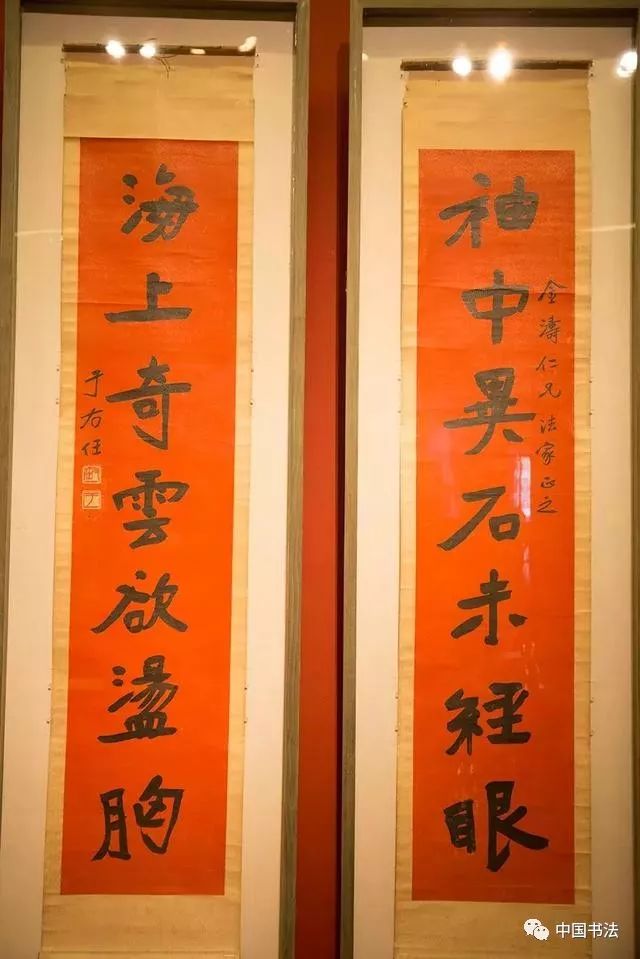 袖中異石未經眼
金濤仁兄法家正之
海上奇雲欲盪胸
于右任
中国书法